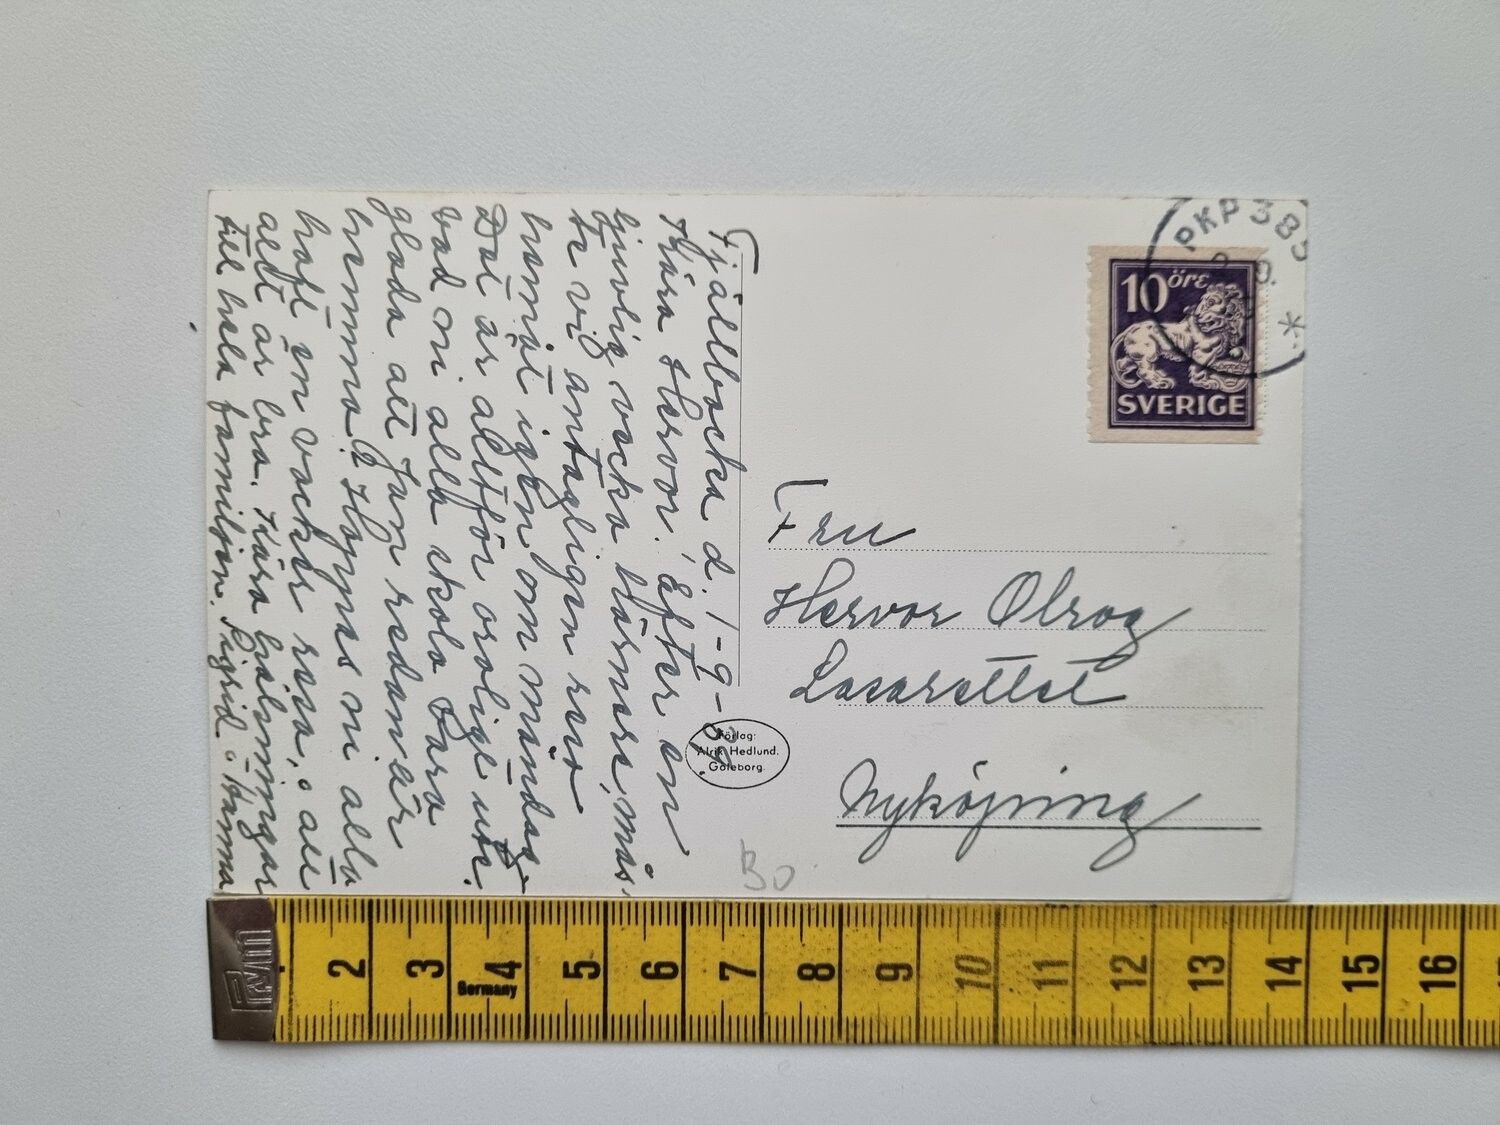 Fjällbacka d. 1-9-
Kära Hervor! Efter en
ljuvlig vecka härnere, mås-
te vi antagligen resa
hemåt igen om måndag
Det är alltför oroligt ute.
Vad ni alla skola vara
glada att Jan redan är
hemma! Hoppas ni alla
haft en vacker resa, o att
allt är bra. Kära hälsningar
till hela familjen. Sigrid o Hanna
PKP 385
10 ÖRE
SVERIGE
Fru
Hervor Olrog
Lasarettet
Nyköping
Förlag:
Alrik Hedlund.
Göteborg.
Bo
2 3 4 5 6 7 8 9 10 11 12 13 14 15 16
Germany